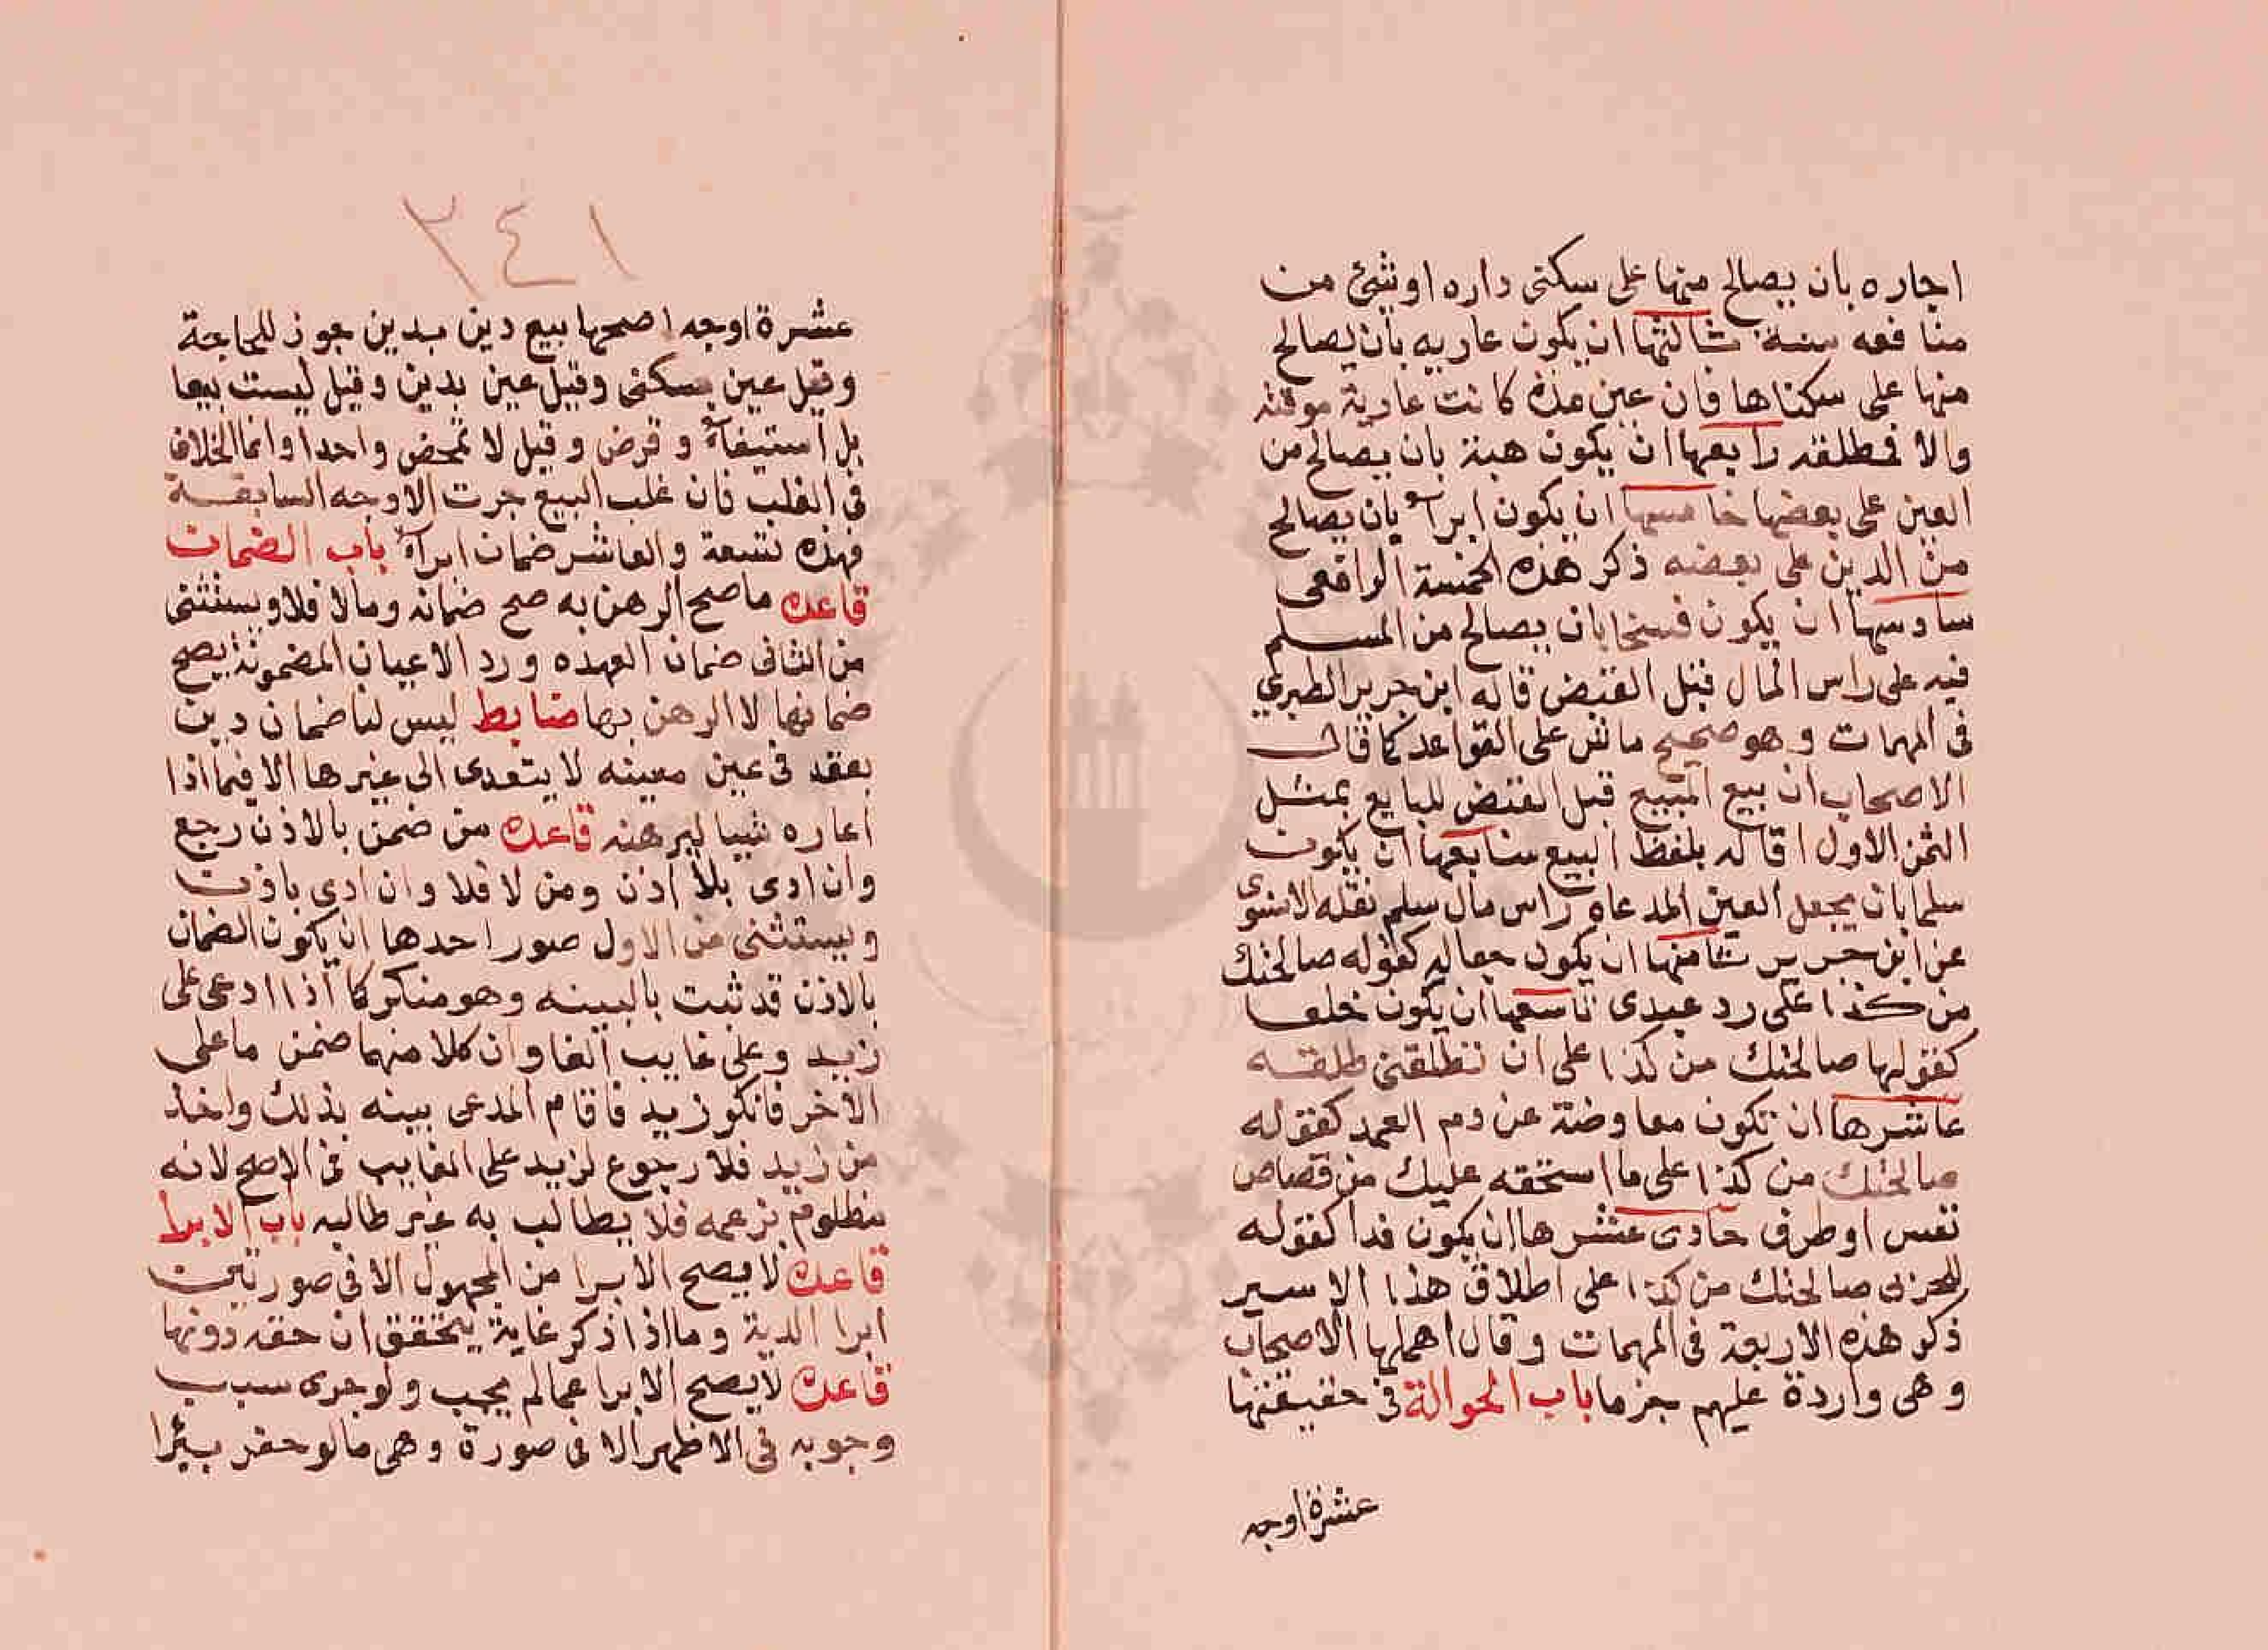 اجاره بان يصالح منها على سكنى داره او شئ من
منافعه سنة ثالثها ان يكون عاريه بان يصالح
منها على سكناها فان عين مدة كانت عارية موقته
والا فمطلقه رابعها ان يكون هبة بان يصالح من
العين على بعضها خامسها ان يكون ابرآء بان يصالح
من الدين على بعضه ذكر هذه الخمسة الرافعى
سادسها ان يكون فسخا بان يصالح من المسلم
فيه على راس المال قبل القبض قاله ابن جرير الطبرى
فى المهمات وهو صحيح ماش على القواعد كما قال
الاصحاب ان بيع المبيع قبل القبض للبايع بمثل
الثمن الاول اقاله بلفظ البيع سابعها ان يكون
سلما بان يجعل العين المدعاه راس مال سلم نقله الاسنوى
عن ابن جرير ثامنها ان يكون جعاله كقوله صالحتك
من كذا على رد عبدى تاسعها ان يكون خلعا
كقولها صالحتك من كذا على ان تطلقنى طلقه
عاشرها ان تكون معاوضة عن دم العمد كقوله
صالحتك من كذا على ما استحقه عليك من قصاص
نفس او طرف حادى عشرها ان يكون فدا كقوله
للحربى صالحتك من كذا على اطلاق هذا الاسير
ذكر هذه الاربعة فى المهمات وقال اهملها الاصحاب
وهى واردة عليهم جزما باب الحوالة فى حقيقتها
عشرة اوجه
٢٤١
عشرة اوجه اصحها بيع دين بدين جوز للحاجة
وقيل عين بسكنى وقيل عين بدين وقيل ليست بيعا
بل استيفآء وقرض وقيل لا تمحض واحدا وانما الخلاف
فى الغلب فان غلب البيع جرت الاوجه السابقة
فهذه تسعة والعاشر ضمان ابرآء باب الضمان
قاعدة ما صح الرهن به صح ضمانه وما لا فلا ويستثنى
من الثانى ضمان العهده ورد الاعيان المضمونة يصح
ضمانها لا الرهن بها ضابط ليس لنا ضمان دين
بعقد فى عين معينه لا يتعدى الى غيرها الا فيما اذا
اعاره شيا ليرهنه قاعدة من ضمن بالاذن رجع
وان ادى بلا اذن ومن لا فلا وان ادى باذن
ويستثنى من الاول صور احدها ان يكون الضمان
بالاذن قد ثبت بالبينه وهو منكر كما اذا ادعى على
زيد وعلى غايب الفا وان كلا منهما ضمن ما على
الاخر فانكر زيد فاقام المدعى بينه بذلك واخذ
من زيد فلا رجوع لزيد على الغايب فى الاصح لانه
مظلوم بزعمه فلا يطالب به غير ظالمه باب الابرا
قاعدة لا يصح الابرا من المجهول الا فى صورتين
ابرا الدية وما اذا ذكر غاية يتحقق ان حقه دونها
قاعدة لا يصح الابرا عما لم يجب ولو جرى سبب
وجوبه فى الاظهر الا فى صورة وهى ما لو حفر بيرا